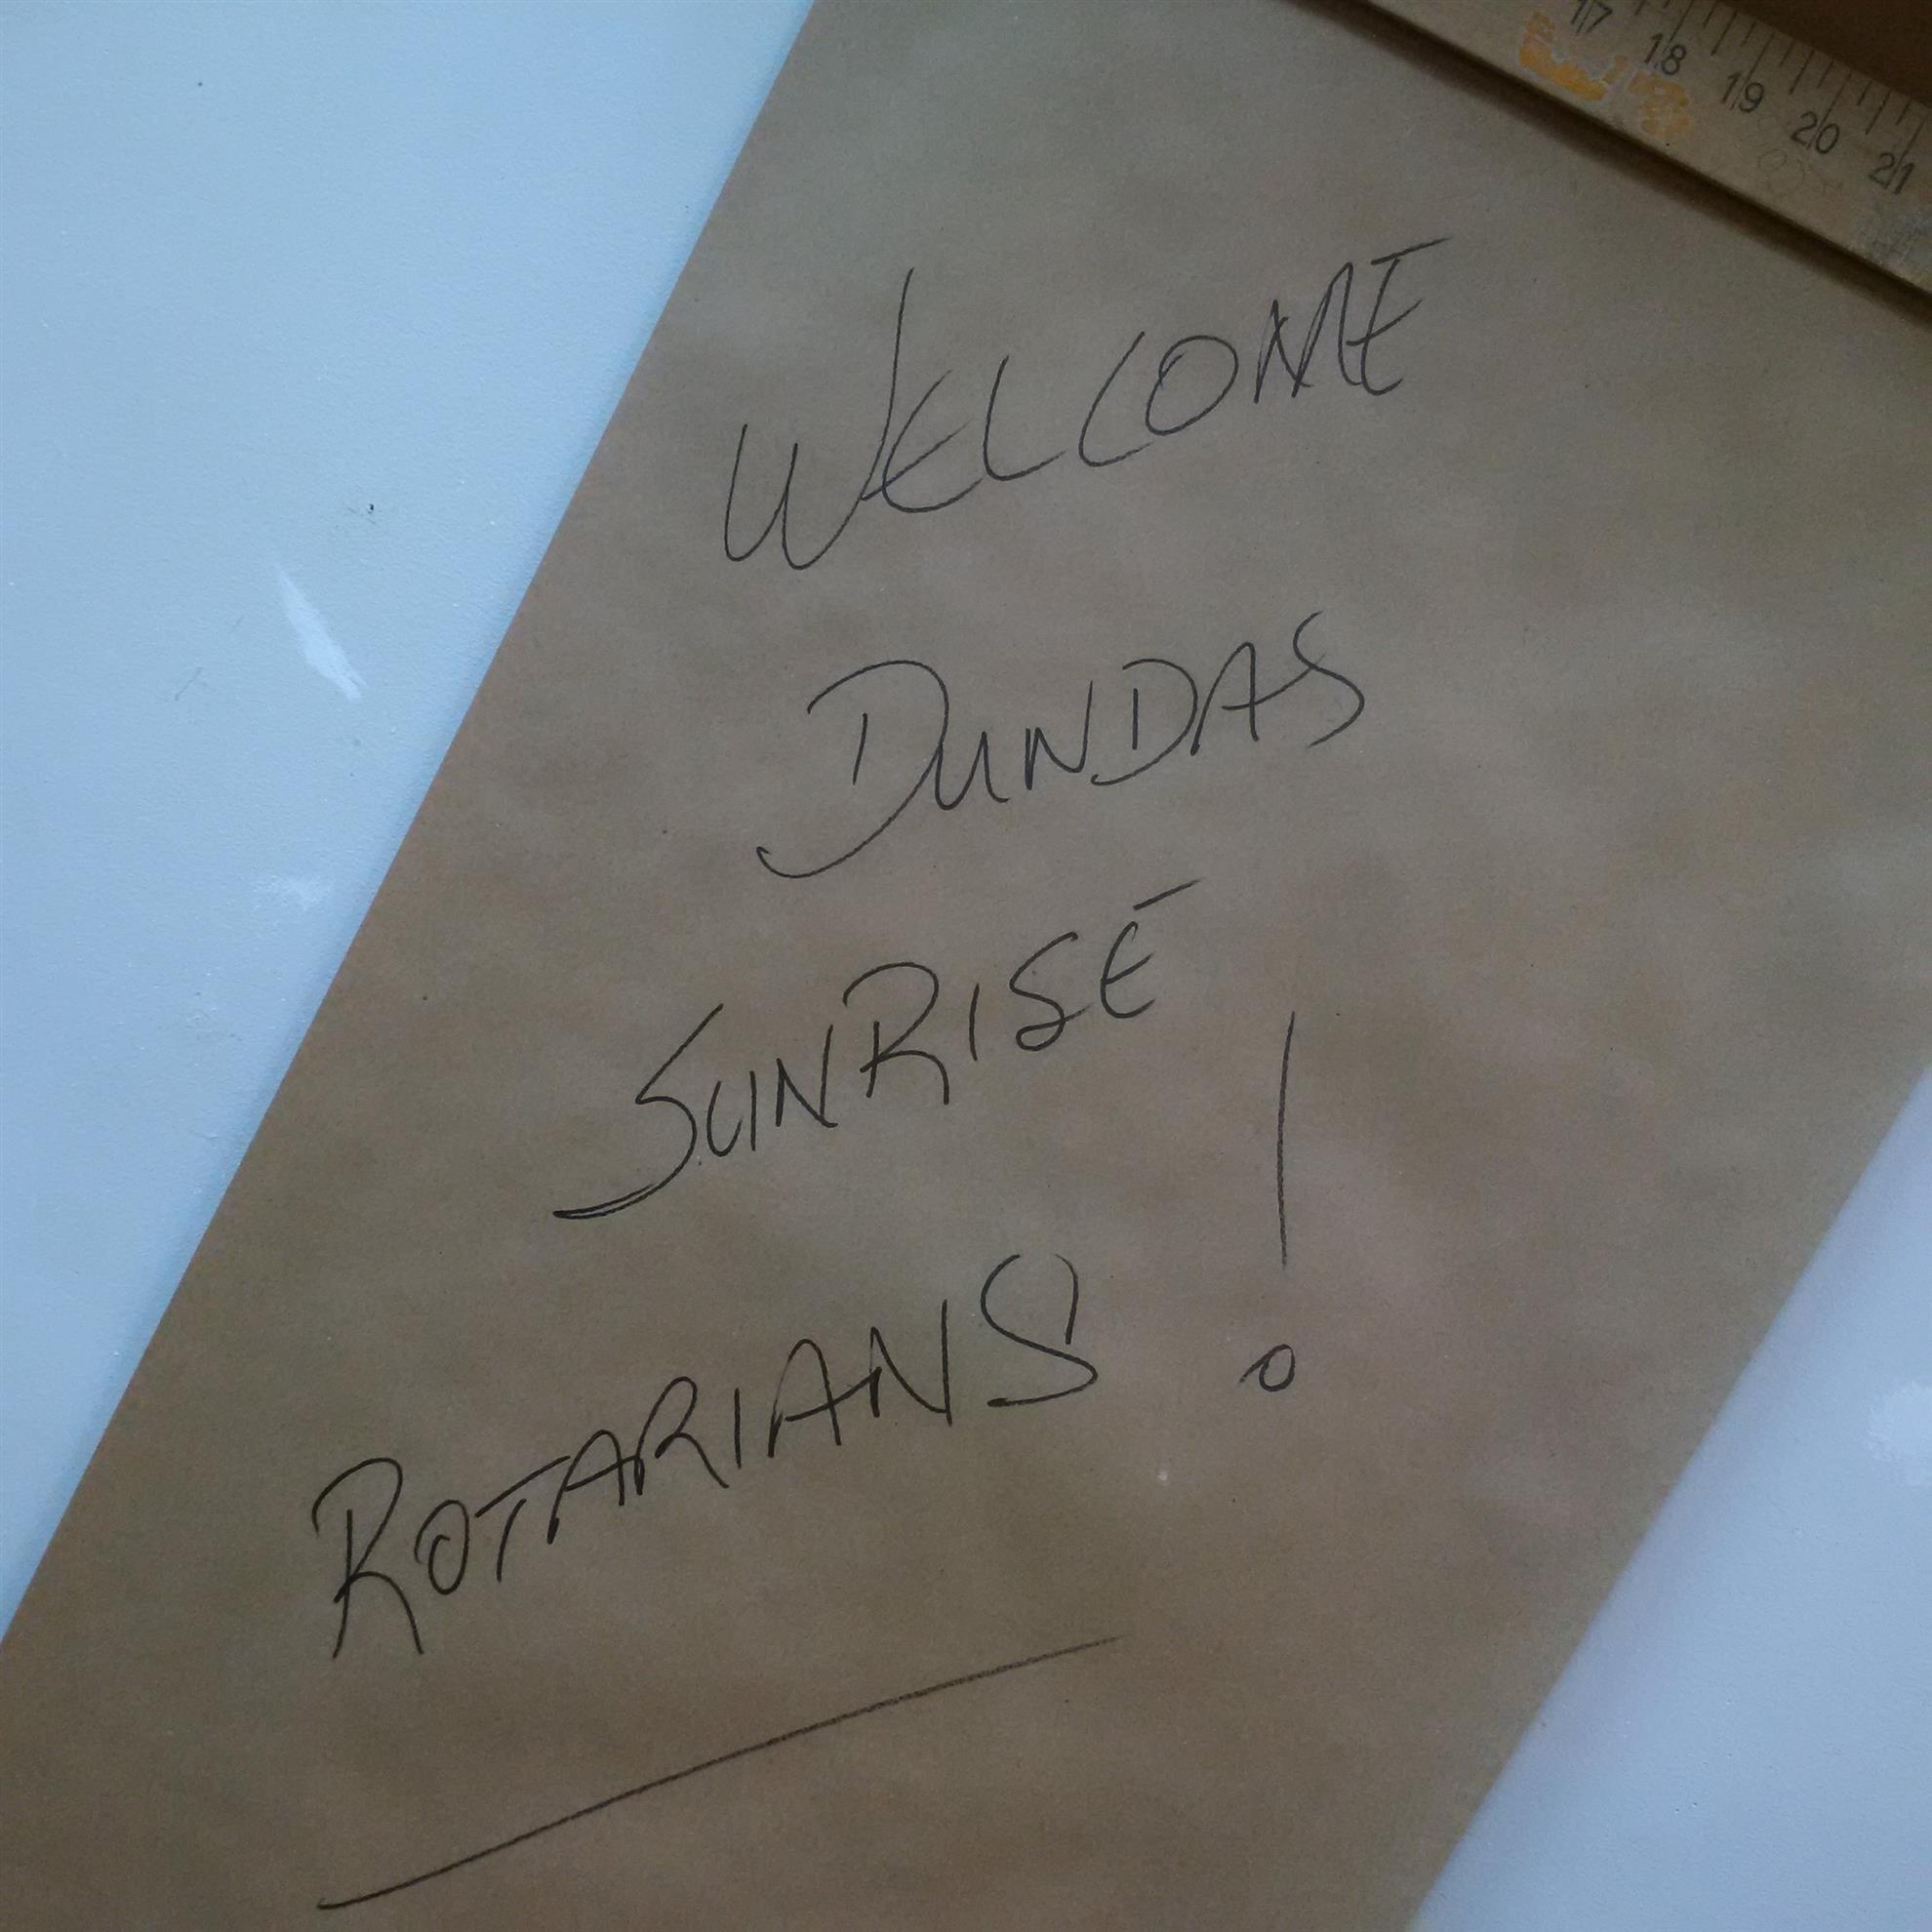 17 18 19 20 21
WELCOME
DUNDAS
SUNRISE
ROTARIANS!